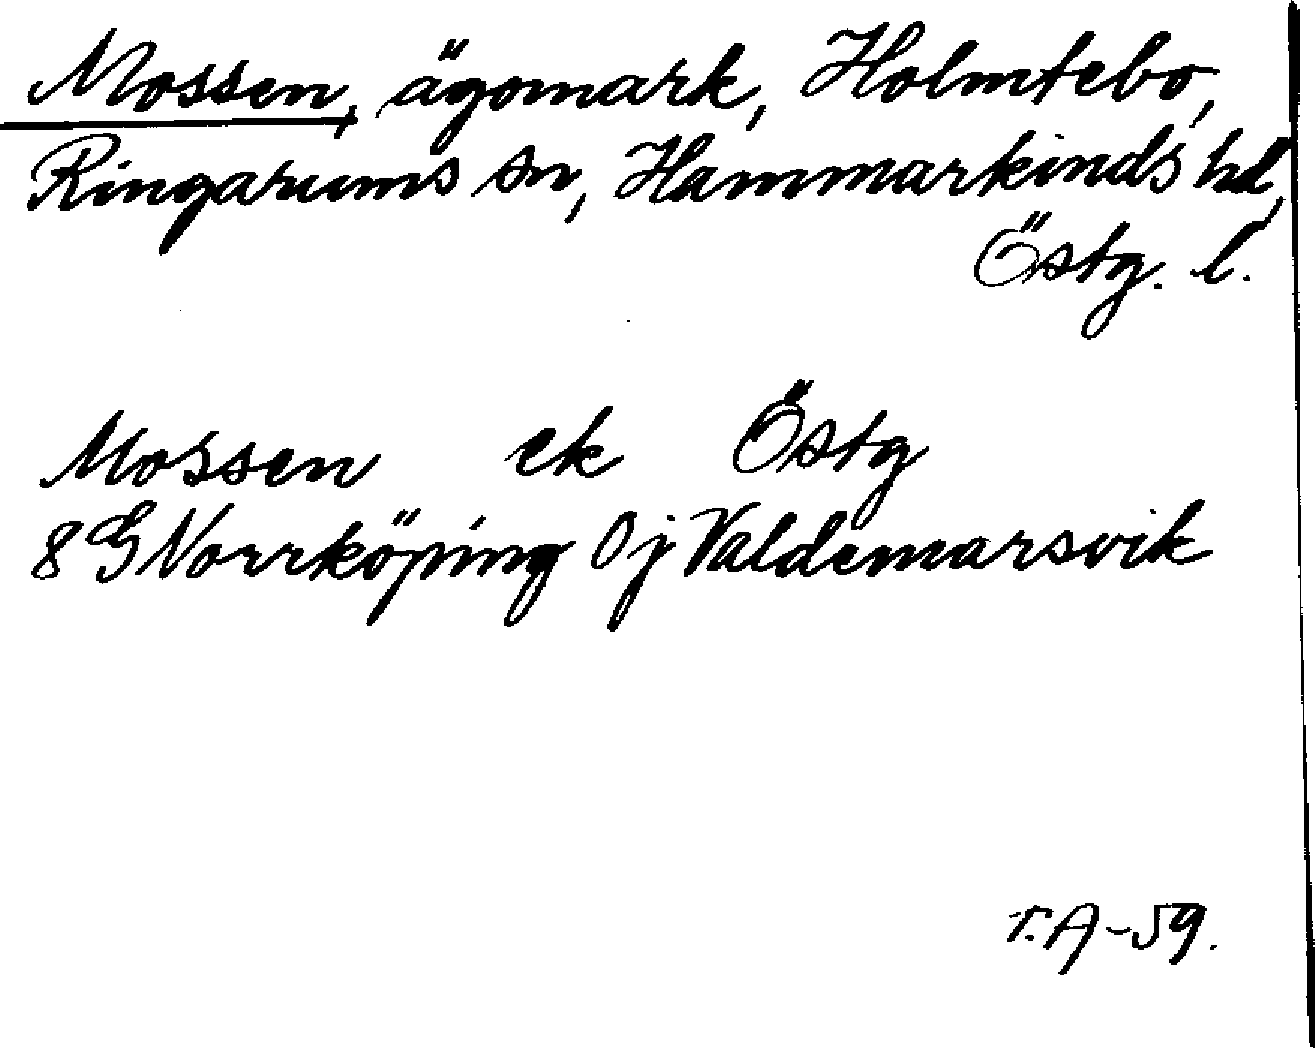 Mossen, ägomark, Holmtebo,
Ringarums sn, Hammarkinds hd,
Östg. l.
Mossen ek Östg
8 G Norrköping 0 j Valdemarsvik
T.A-59.